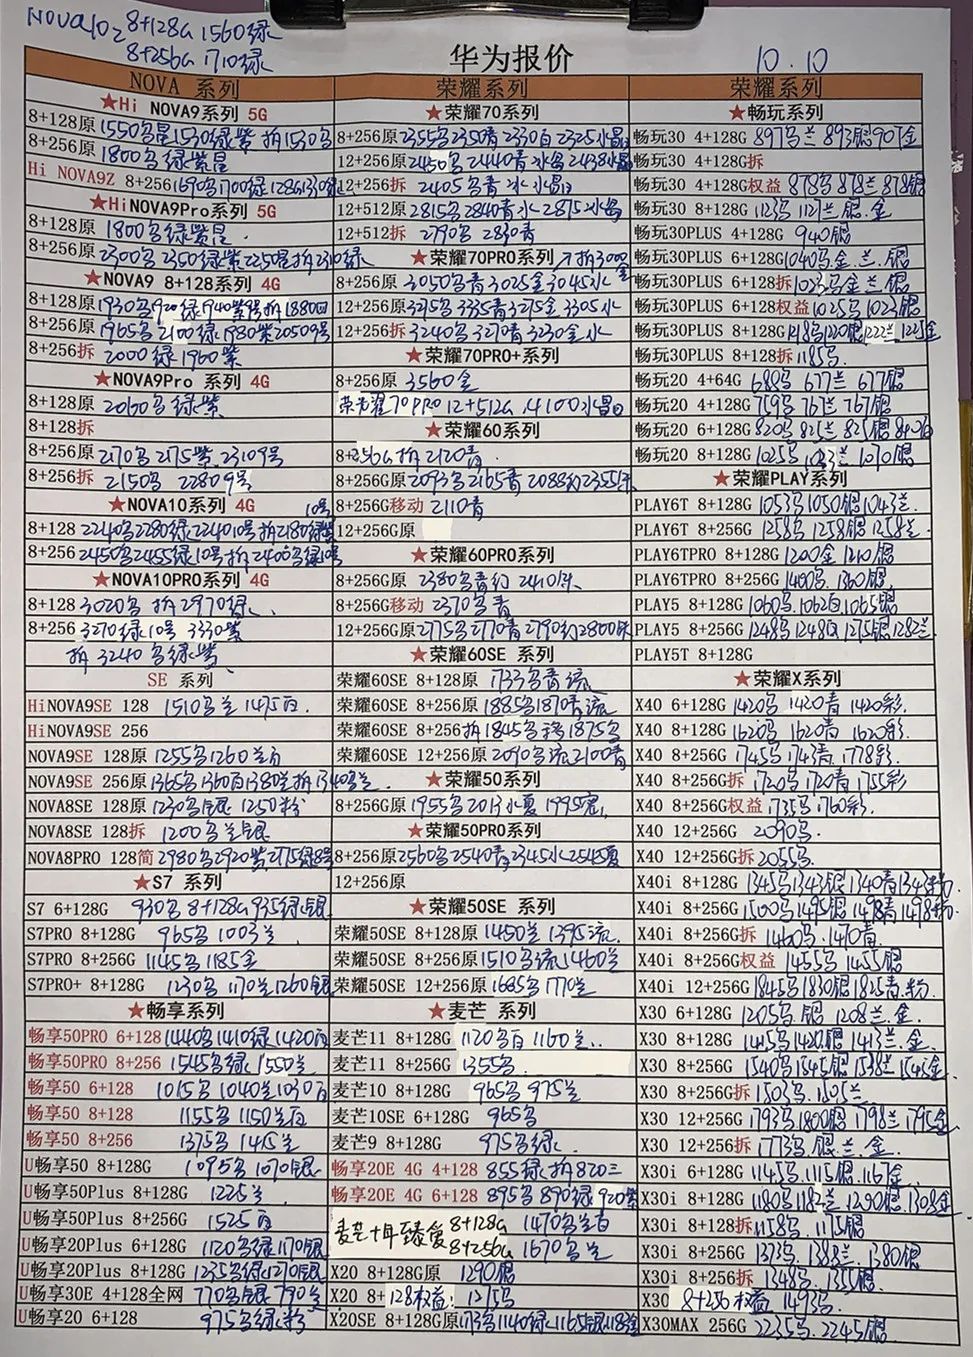 NOVA10Z 8+128G 1560绿
8+256G 1710绿
华为报价
10.10
NOVA 系列
★Hi NOVA9系列 5G
8+128原 1550乌星1530绿紫 拆1530乌
8+256原 1800乌绿紫星
Hi NOVA9Z 8+256 1690乌1700绿 128G1330绿
★HiNOVA9Pro系列 5G
8+128原 1800乌绿紫星.
8+256原 2300乌 2350绿紫2250星拆2310绿
★NOVA9 8+128系列 4G
8+128原 1930乌920绿940紫9号拆1880回
8+256原 1965乌2100绿1980紫2050 9号
8+256拆 2000绿1960紫
★NOVA9Pro 系列 4G
8+128原 2060乌绿紫
8+128拆
8+256原 2170乌2175紫.2310 9号
8+256拆 2150乌 2280 9号
★NOVA10系列 4G 10号
8+128 2240乌2280绿2240 10号拆2180绿紫
8+256 2450乌2455绿10号拆2400乌绿10号
★NOVA10PRO系列 4G
8+128 3020乌 拆2970绿、
8+256 3270绿10号 3330紫
拆 3240乌绿紫
SE 系列
HiNOVA9SE 128 1510乌兰1475百
HiNOVA9SE 256
NOVA9SE 128原 1255乌1260兰百
NOVA9SE 256原 1365乌1360百1380兰拆1340乌兰.
NOVA8SE 128原 1230乌银 1250粉
NOVA8SE 128拆 1200乌兰银
NOVA8PRO 128简 2980乌2920紫2775绿8号
★S7 系列
S7 6+128G 930乌 8+128G 935绿银
S7PRO 8+128G 965乌 1003兰
S7PRO 8+256G 1145乌1185金
S7PRO+ 8+128G 1230乌 1170兰1260银
★畅享系列
畅享50PRO 6+128 1440乌1410绿1420百
畅享50PRO 8+256 1545乌绿 1550兰
畅享50 6+128 1015乌 1040兰1030百
畅享50 8+128 1155乌1150兰百
畅享50 8+256 1375乌 1415兰
U畅享50 8+128G 1095乌1070银
U畅享50Plus 8+128G 1225兰.
U畅享50Plus 8+256G 1525百
U畅享20Plus 6+128G 1120乌绿1170银
U畅享20Plus 8+128G 1235乌绿1270银
U畅享30E 4+128全网 770乌银 790兰
U畅享20 6+128 975乌绿粉
荣耀系列
★荣耀70系列
8+256原 2355乌2350青2330百2325水晶
12+256原 2450乌2440青冰岛2438水晶
12+256拆 2405乌青冰 水晶
12+512原 2815乌2840青 2875冰岛
12+512拆 2790乌 2830青
★荣耀70PRO系列 拆3000金
8+256原 3050乌青3025金3045水
12+256原 3315乌3335青3275金3305水
12+256拆 3240乌3270青3230金水
★荣耀70PRO+系列
8+256原 3560金
荣耀70PRO 12+512G 4100水晶
★荣耀60系列
8+256G拆2120青.
8+256G原 2093乌2165青2088幻2355
8+256G移动 2110青
12+256G原
★荣耀60PRO系列
8+256G原 2380乌青幻 2410
8+256G移动 2370乌青
12+256G原 2775乌2770青2790幻2800
★荣耀60SE 系列
荣耀60SE 8+128原 1733乌青流
荣耀60SE 8+256原 1885乌1870青流
荣耀60SE 8+256拆1845乌 移1875乌
荣耀60SE 12+256原 2090乌流2100青
★荣耀50系列
8+256G原 1955乌2013水夏1995亮.
★荣耀50PRO系列
8+256原2560乌2540青2345水2545夏
12+256原
★荣耀50SE 系列
荣耀50SE 8+128原 1450兰1395流.
荣耀50SE 8+256原 1510乌流1460兰
荣耀50SE 12+256原 1685兰1770兰
★麦芒 系列
麦芒11 8+128G 1120乌百 1160兰..
麦芒11 8+256G 1355乌
麦芒10 8+128G 965乌 975兰
麦芒10SE 6+128G 965乌
麦芒9 8+128G 975乌绿.
畅享20E 4G 4+128 855绿拆820三
畅享20E 4G 6+128 895乌890绿920紫
麦芒十年臻爱 8+128G 1470乌兰百
8+256G 1670乌兰
X20 8+128G原 1290银
X20 8+128权益: 1275乌
X20SE 8+128G原1173乌1140绿1165银1183金
荣耀系列
★畅玩系列
畅玩30 4+128G 897乌兰 893银907金
畅玩30 4+128G拆
畅玩30 4+128G权益 878乌 878兰 878银
畅玩30 8+128G 1123乌 1127兰银.金
畅玩30PLUS 4+128G 940银
畅玩30PLUS 6+128G1040乌金.兰.银
畅玩30PLUS 6+128拆1023乌金银
畅玩30PLUS 6+128权益1025乌1023银
畅玩30PLUS 8+128G1218乌1220银1222兰1225金
畅玩30PLUS 8+128拆1185乌.
畅玩20 4+64G 688乌 677兰 677银
畅玩20 4+128G 759乌 767兰 767银
畅玩20 6+128G 820乌 825兰 825银840白
畅玩20 8+128G 1025乌 1033兰 1070银
★荣耀PLAY系列
PLAY6T 8+128G 1053乌1050银1043兰
PLAY6T 8+256G 1258乌 1258银 1258兰
PLAY6TPRO 8+128G 1200金 1210银
PLAY6TPRO 8+256G 1400乌.1360银
PLAY5 8+128G 1060乌.1062白.1065银
PLAY5 8+256G 1248乌1248白1275银1282兰
PLAY5T 8+128G
★荣耀X系列
X40 6+128G 1420乌 1420青 1420彩.
X40 8+128G 1620乌 1620青 1620彩.
X40 8+256G 1745乌 1743青. 1778彩.
X40 8+256G拆 1720乌 1720青 1755彩
X40 8+256G权益 1735乌1760彩.
X40 12+256G 2090乌.
X40 12+256G拆 2055乌.
X40i 8+128G 1345乌1343银1340青1343粉.
X40i 8+256G 1500乌1495银1498青1498粉.
X40i 8+256G拆 1460乌.1470青.
X40i 8+256G权益 1455乌 1455银
X40i 12+256G 1845乌1830银1825青.粉.
X30 6+128G 1205乌.银 1208兰.金.
X30 8+128G 1415乌1420银1413兰.金.
X30 8+256G 1540乌1545银1538兰1545金
X30 8+256G拆 1503乌.1505兰.
X30 12+256G 1793乌1800银1798兰1795金
X30 12+256G拆 1773乌.银.兰.金.
X30i 6+128G 1145乌.1115银.1167金.
X30i 8+128G 1180乌1182兰1290银.1308金
X30i 8+128拆1158乌.1175银
X30i 8+256G 1373乌.1383兰.1380银
X30i 8+256G拆 1348乌.1355银.
X30 8+256权益 1493乌.
X30MAX 256G 2235乌.2245银.